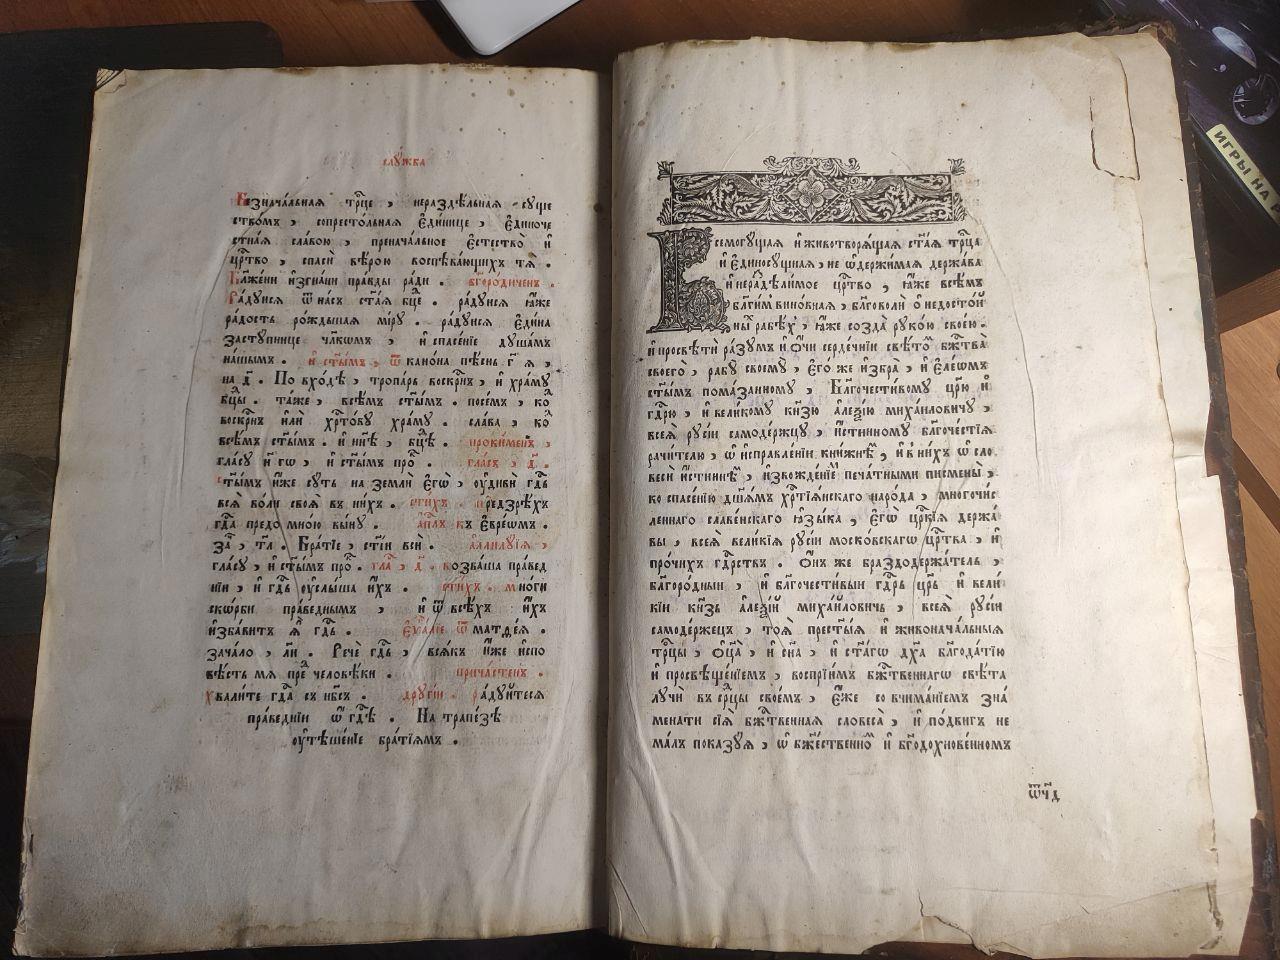 слꙋ́жба
Безнача́льная трⷪ҇це, нераздѣ́льная сꙋще
ство́мъ, сопресто́льная є҆ди́нице, є҆диноче
стная сла́вою, пренача́льное є҆стество̀ и҆
црⷭ҇тво, спаси вѣ́рою воспѣва́ющихъ тѧ̀.
Бл҃же́ни и҆згна́ни пра́вды ра́ди. бг҃оро́диченъ.
Ра́дꙋисѧ ѿ на́съ ст҃а́ѧ бцⷣе. ра́дꙋисѧ ꙗ҆́же
ра́дость ро́ждьшаѧ мі́рꙋ. ра́дꙋисѧ є҆ди́на
застꙋ́пнице чл҃комъ, и҆ спасе́ніе дꙋша́мъ
на́шымъ. и҆ ст҃ы́мъ, ѿ кано́на пѣ́снь г҃ ѧ,
на д҃. По вхо́дѣ, тропа́рь воскр҃нъ, и҆ хра́мꙋ
бцⷣы. та́же, всѣ́мъ ст҃ы́мъ. посе́мъ, коⷣ
воскр҃нъ и҆лѝ хрⷭ҇то́вꙋ хра́мꙋ. сла́ва, коⷣ
всѣ́мъ ст҃ы́мъ. и҆ ны́нѣ, бцⷣе. проки́менъ,
гла́сꙋ и҆ гѡ, и҆ ст҃ы́мъ про̑. гла́съ, д҃.
ст҃ы́мъ и҆́же сꙋть на землѝ є҆гѡ̀, оу҆дивѝ гдⷭ҇ь
всѧ̀ во́ли своѧ̀ въ ни́хъ. сти́хъ. предзрѣ́хъ
гдⷭ҇а предо мно́ю вы́нꙋ. а҆пⷭ҇лъ къ є҆вре́ѡмъ.
за̑, т҃л. Бра́тіе, ст҃і́и всѝ. а҆ллилꙋ́іа,
гла́сꙋ, и҆ ст҃ы́мъ про̑. гла̑, д҃. возва́ша пра́вед
ніи, и҆ гдⷭ҇ь оу҆слы́ша и҆́хъ. сти́хъ. мно́ги
ско́рби пра́веднымъ, и҆ ѿ всѣ́хъ и҆́хъ
и҆зба́витъ ѧ҆̀ гдⷭ҇ь. є҆ѵⷢ҇ліе ѿ матѳе́ѧ.
зача́ло, л҃и. Речѐ гдⷭ҇ь, всѧ́къ и҆́же и҆спо
вѣ́сть мѧ пре̑ человѣ́ки. прича́стенъ.
хвали́те гдⷭ҇а съ нб҃съ. дрꙋгі́и. ра́дꙋйтесѧ
пра́ведніи ѡ҆ гдⷭ҇ѣ. На трапе́зѣ
оу҆тѣше́ніе бра́тіѧмъ.
Всемогꙋ́щаѧ и҆ животворѧ́щаѧ ст҃а́ѧ трⷪ҇це
и҆ є҆диносꙋ́щнаѧ, не ѡ҆держи́маѧ держа́ва
и҆ нераздѣли́мое црⷭ҇тво, ꙗ҆́же всѣ́мъ
бл҃ги́мъ вино́внаѧ, бл҃говолѝ ѡ҆ недосто́и
ны́ рабѣ́хъ, ꙗ҆̀же созда̀ рꙋко́ю свое́ю.
и҆ просвѣтѝ ра́зꙋмъ и҆ ѻ҆́чи серде́чніи свѣ́томъ бжⷭ҇тва
своего̀, рабꙋ̀ своемꙋ̀, є҆го́ же и҆збра̀, и҆ є҆ле́ѡмъ
ст҃ы́мъ пома́занномꙋ, Бл҃гочести́вомꙋ црⷭ҇ю и҆
гдⷭ҇рю, и҆ вели́комꙋ кн҃зю а҆леѯі́ю миха́иловичꙋ,
всеѧ̀ рꙋсі́и самоде́ржцꙋ, и҆́стинномꙋ бл҃гоче́стіѧ
рачи́телю, ѡ҆ и҆справле́ніи кни́жнѣмъ, и҆ въ ни́хъ ѡ҆ сло
весѝ и҆́стиннѣмъ, и҆ извожде́ніи печа́тными писмены̀,
ко спасе́нію дш҃а́мъ хрⷭ҇тіѧ́нскаго наро́да, многочи́с
леннаго славе́нскаго ꙗ҆зы́ка, є҆гѡ̀ црⷭ҇кіѧ держа́
вы, всеѧ̀ вели́кіѧ рꙋсі́и моско́вскагѡ црⷭ҇тва, и҆
про́чихъ гдⷭ҇рствъ. Ѻ҆́нъ же браздодержа́тель,
бл҃горо́дныи, и҆ бл҃гочести́выи гдⷭ҇рь црⷭ҇ь и҆ вели́
кіи кн҃зь а҆леѯі́й миха́йловичь, всеѧ̀ рꙋсі́и
самоде́ржецъ, тоѧ̀ прест҃ы́ѧ и҆ живонача́льныѧ
трⷪ҇цы, ѻ҆ц҃а̀, и҆ сн҃а, и҆ ст҃а́гѡ дх҃а бл҃года́тію
и҆ просвѣще́ніемъ, воспрїи́мъ бжⷭ҇твеннагѡ свѣ́та
лꙋчи̑ въ срⷣцы свое́мъ, є҆́же со внима́ніемъ зна́
менати сіѧ̑ бжⷭ҇твеннаѧ словеса̀, и҆ по́двигъ не
ма́лъ показꙋ́ѧ, ѡ҆ бжⷭ҇твенномъ и҆ бг҃одохнове́нномъ
ѿчд҃
ИГРЫ НА